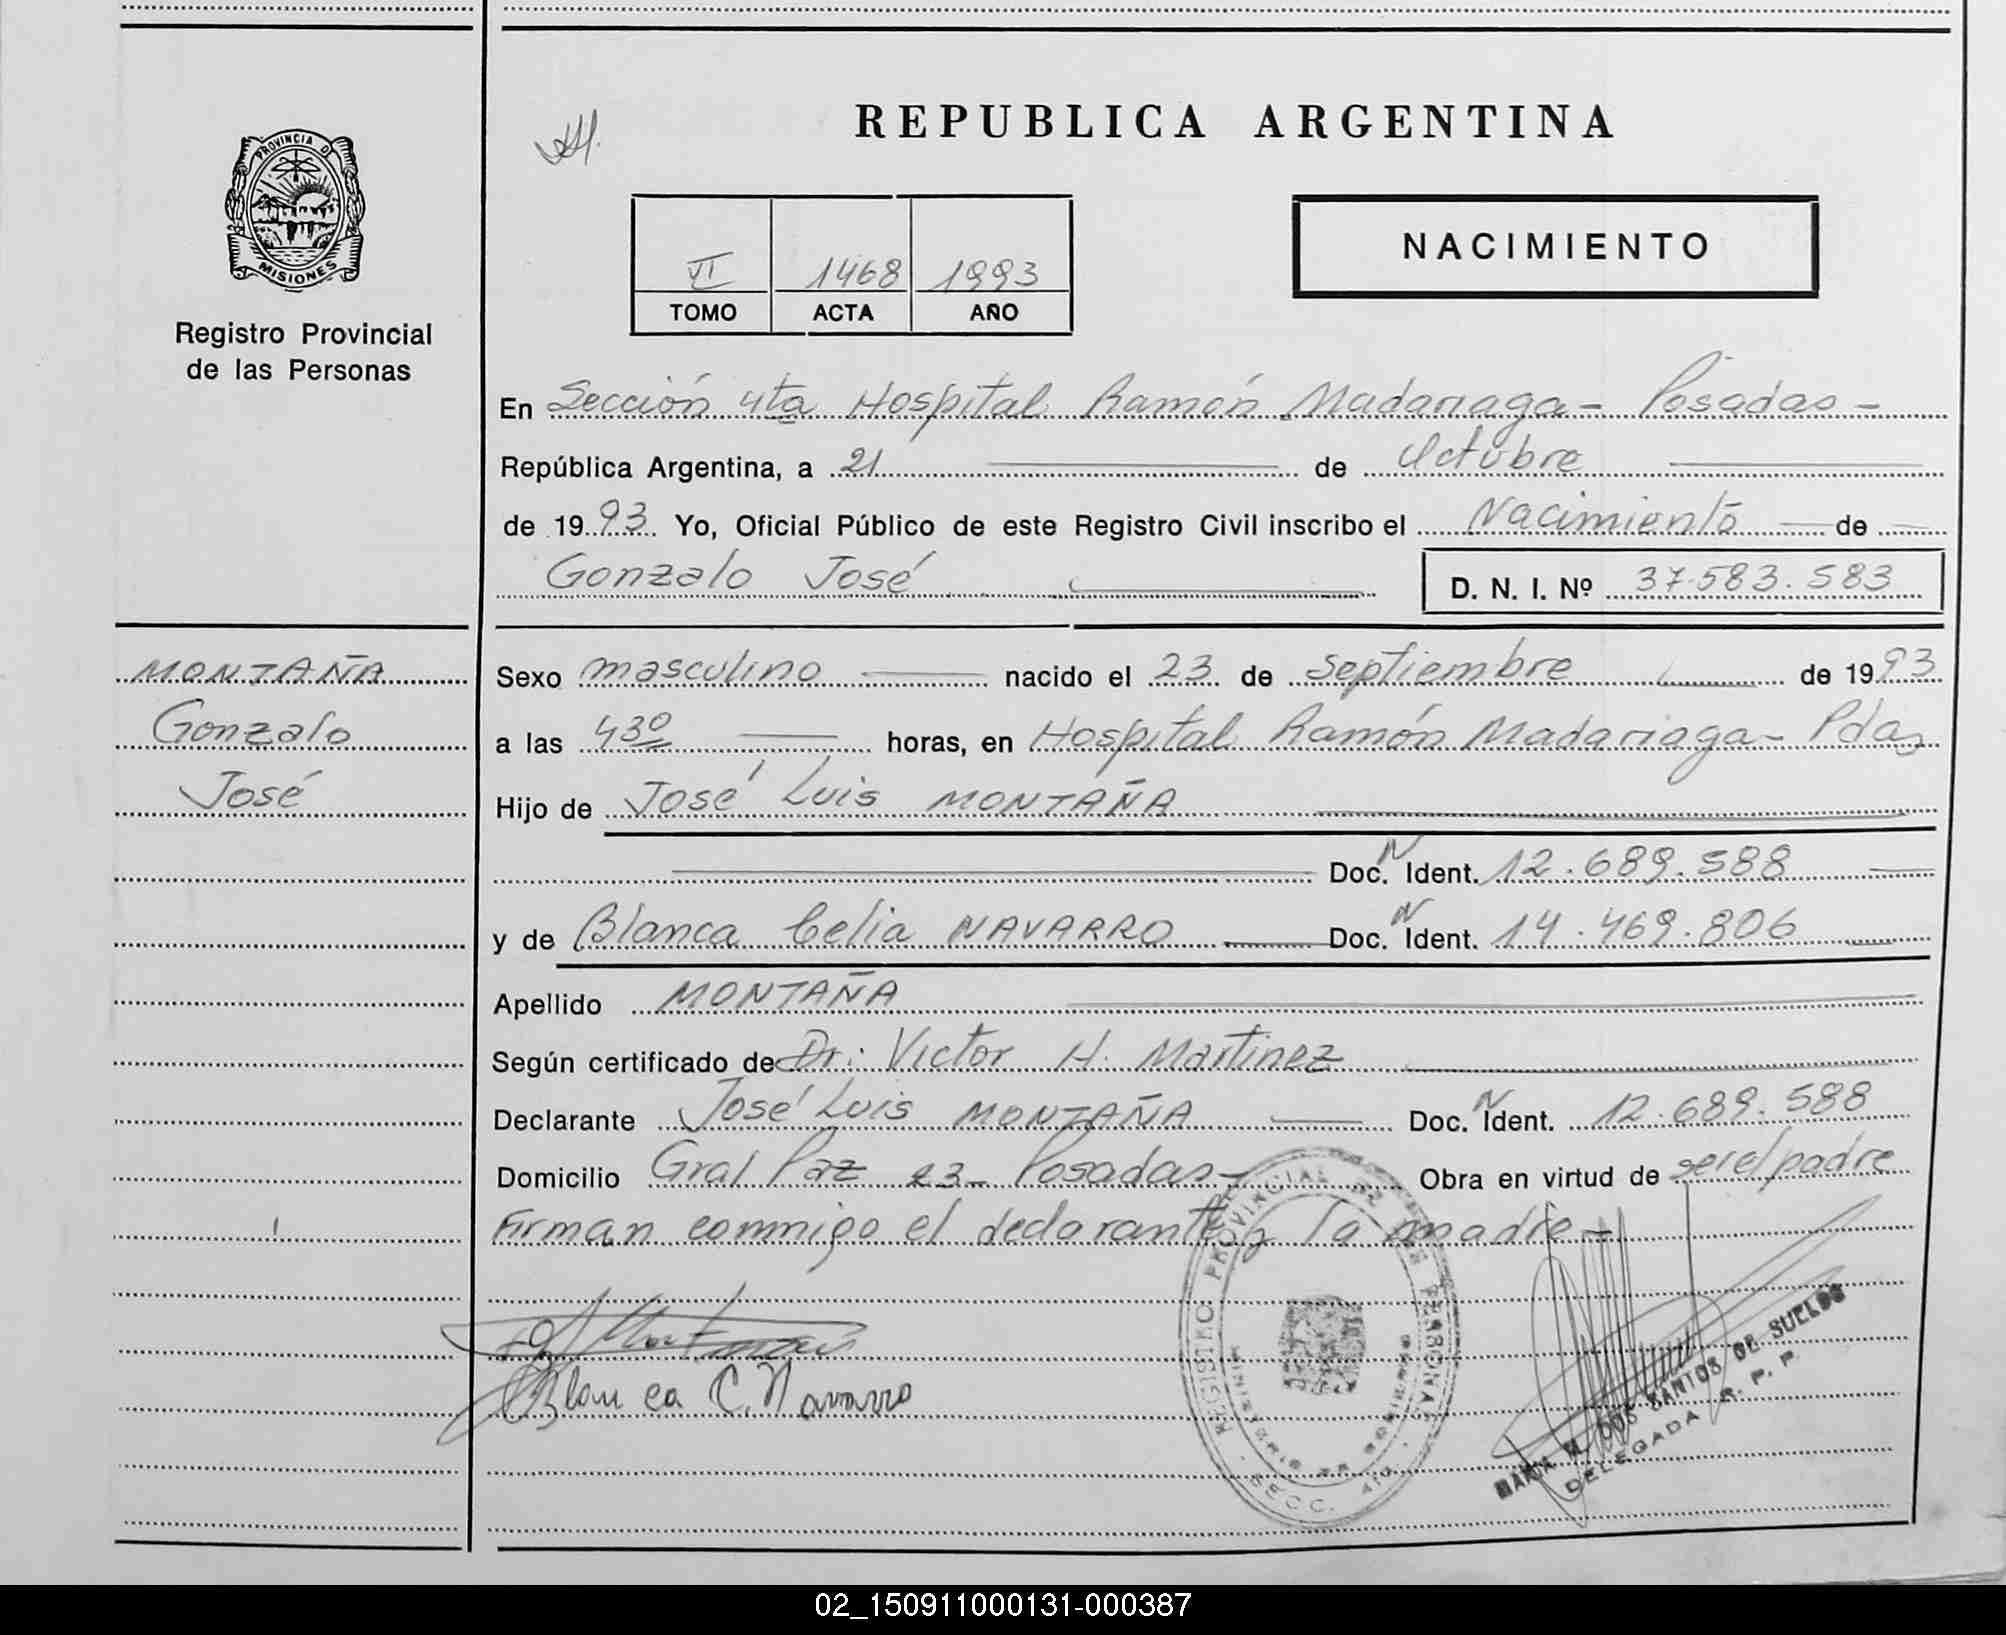 REPUBLICA ARGENTINA
PROVINCIA D
MISIONES
Registro Provincial
de las Personas
VI 1468 1993
TOMO ACTA AÑO
NACIMIENTO
En Sección 4ta Hospital Ramón Madariaga - Posadas -
República Argentina, a 21 de Octubre
de 1993 Yo, Oficial Público de este Registro Civil inscribo el Nacimiento de
Gonzalo José D. N. I. Nº 37.583.583
MONTAÑA
Gonzalo
José
Sexo masculino nacido el 23 de septiembre de 1993
a las 430 horas, en Hospital Ramón Madariaga - Pdas
Hijo de José Luis MONTAÑA
Doc. N Ident. 12.689.588
y de Blanca Celia NAVARRO Doc. N Ident. 14.469.806
Apellido MONTAÑA
Según certificado de Dr: Victor H. Martinez
Declarante José Luis MONTAÑA Doc. N Ident. 12.689.588
Domicilio Gral Paz 23- Posadas - Obra en virtud de ser el padre
Firman conmigo el declarante y la madre -
Blanca C. Navarro
REGISTRO PROVINCIAL DE LAS PERSONAS
SECC. 4ta
MARIA M. DOS SANTOS DE SUELOS
DELEGADA R. P. P.
02_150911000131-000387